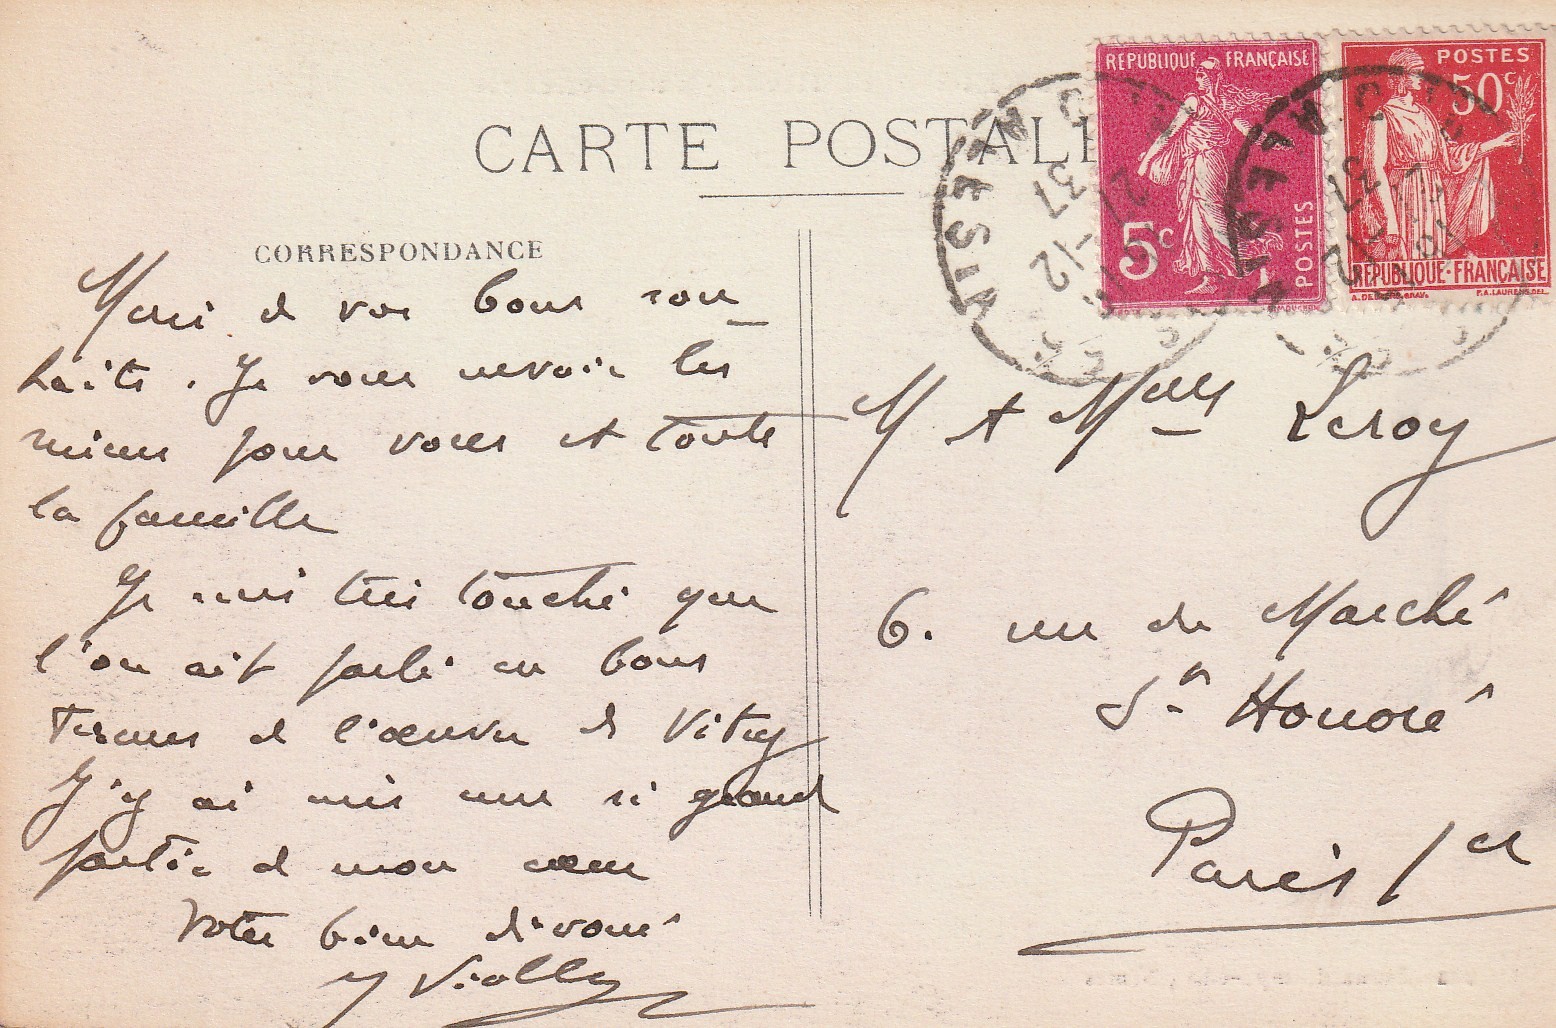 CARTE POSTALE
CORRESPONDANCE
REPUBLIQUE FRANÇAISE
5c
POSTES
POSTES
50c
REPUBLIQUE-FRANÇAISE
21 -12
37
Merci de vos bons sou-
haits. Je vous envoie les
miens pour vous et toute
la famille
Je suis très touché que
l'on ait parlé en bons
termes de l'œuvre de Vitry
J'y ai mis une si grande
partie de mon cœur
Votre bien dévoué
Violly
M et Mme Leroy
6. rue du Marché
St Honoré
Paris 1er